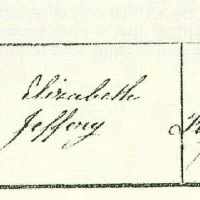 Elizabeth
Jeffery